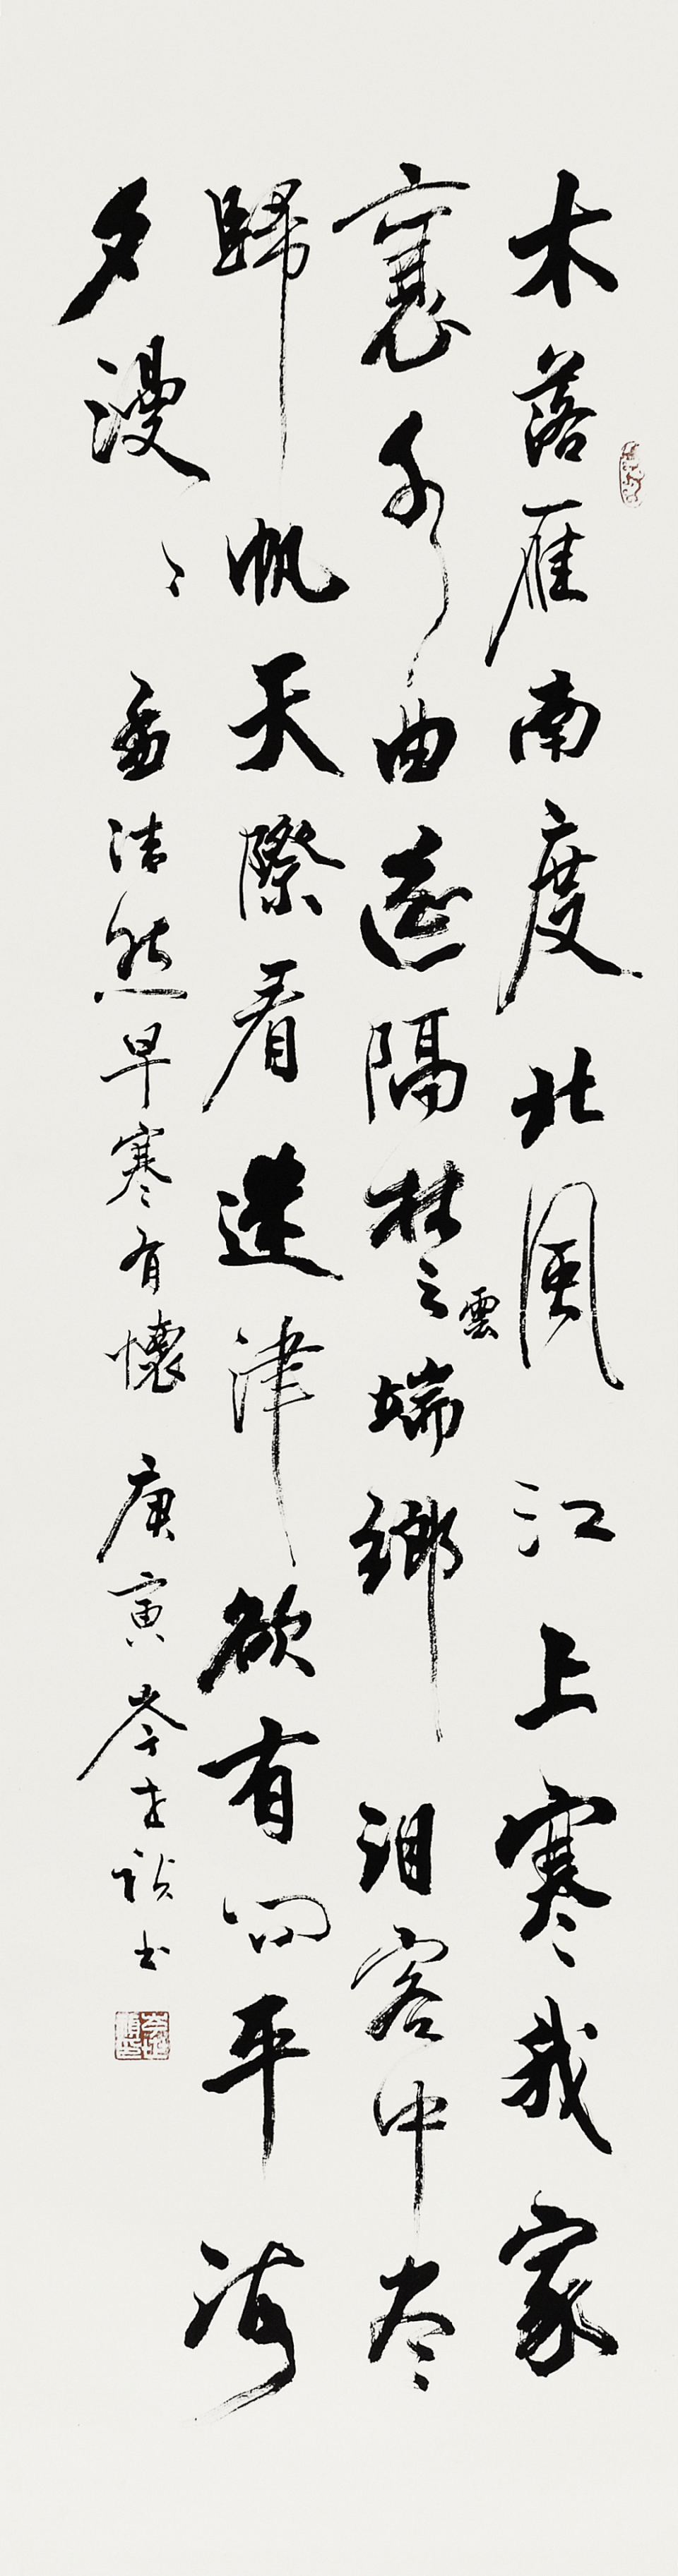 木落雁南度北風江上寒我家
襄水曲遥隔楚雲端鄉泪客中尽
歸帆天際看迷津欲有问平海
夕漫〻 孟浩然早寒有懷 庚寅 岑 书